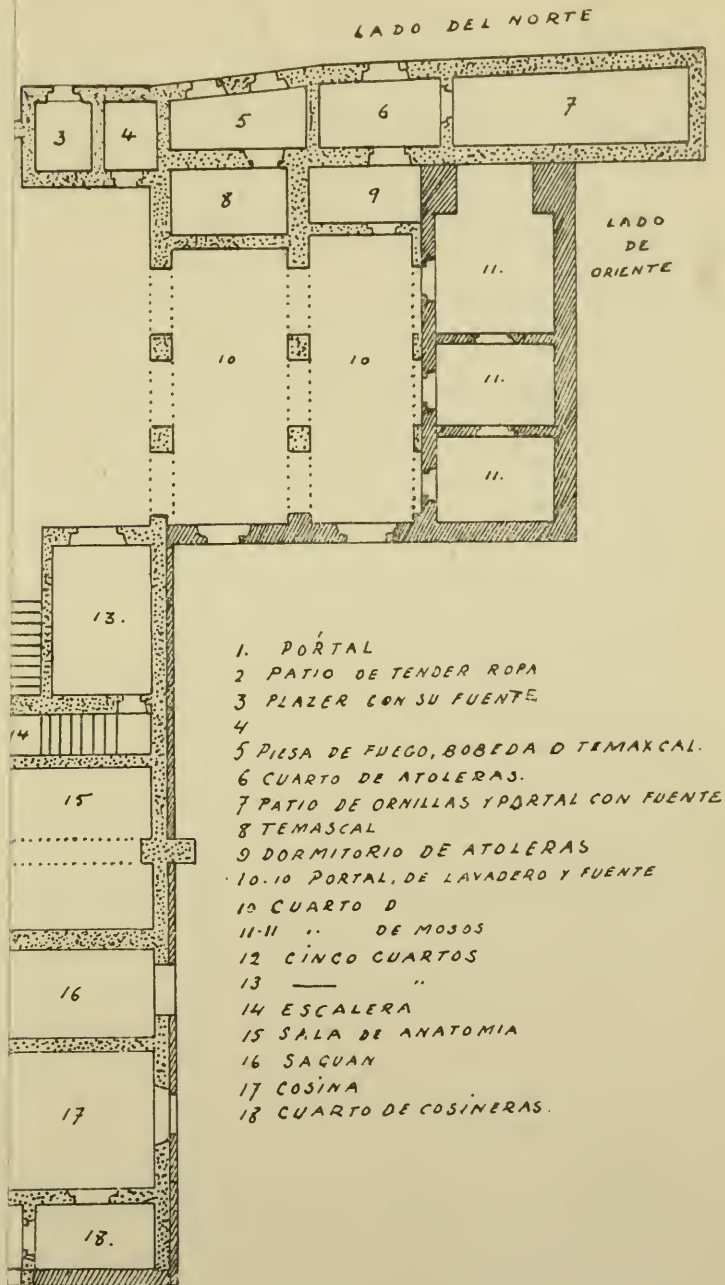 LADO DEL NORTE
3
4
5
6
7
8
9
LADO
DE
ORIENTE
11.
10
10
11.
11.
13.
14
15
16
17
18.
1. PORTAL
2 PATIO DE TENDER ROPA
3 PLAZER CON SU FUENTE
4
5 PIESA DE FUEGO, BOBEDA O TEMAXCAL.
6 CUARTO DE ATOLERAS.
7 PATIO DE ORNILLAS Y PORTAL CON FUENTE
8 TEMASCAL
9 DORMITORIO DE ATOLERAS
10-10 PORTAL, DE LAVADERO Y FUENTE
10 CUARTO D
11-11 " DE MOSOS
12 CINCO CUARTOS
13 — "
14 ESCALERA
15 SALA DE ANATOMIA
16 SAGUAN
17 COSINA
18 CUARTO DE COSINERAS.